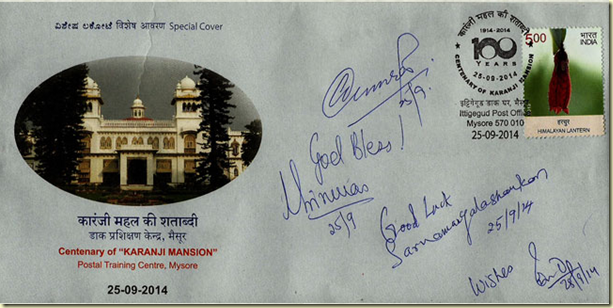 ವಿಶೇಷ ಲಕೋಟೆ विशेष आवरण Special Cover
कारंजी महल की शताब्दी
डाक प्रशिक्षण केन्द्र, मैसूर
Centenary of "KARANJI MANSION"
Postal Training Centre, Mysore
25-09-2014
25/9.
God Bless!
25/9
Good Luck
25/9/14
Wishes
कारंजी महल की शताब्दी
1914-2014
100
YEARS
25-09-2014
CENTENARY OF KARANJI MANSION
इट्टिगेगूड डाक घर, मैसूर
Ittigegud Post Office
Mysore 570 010
25-09-2014
500
भारत
INDIA
हत्थुर
HIMALAYAN LANTERN